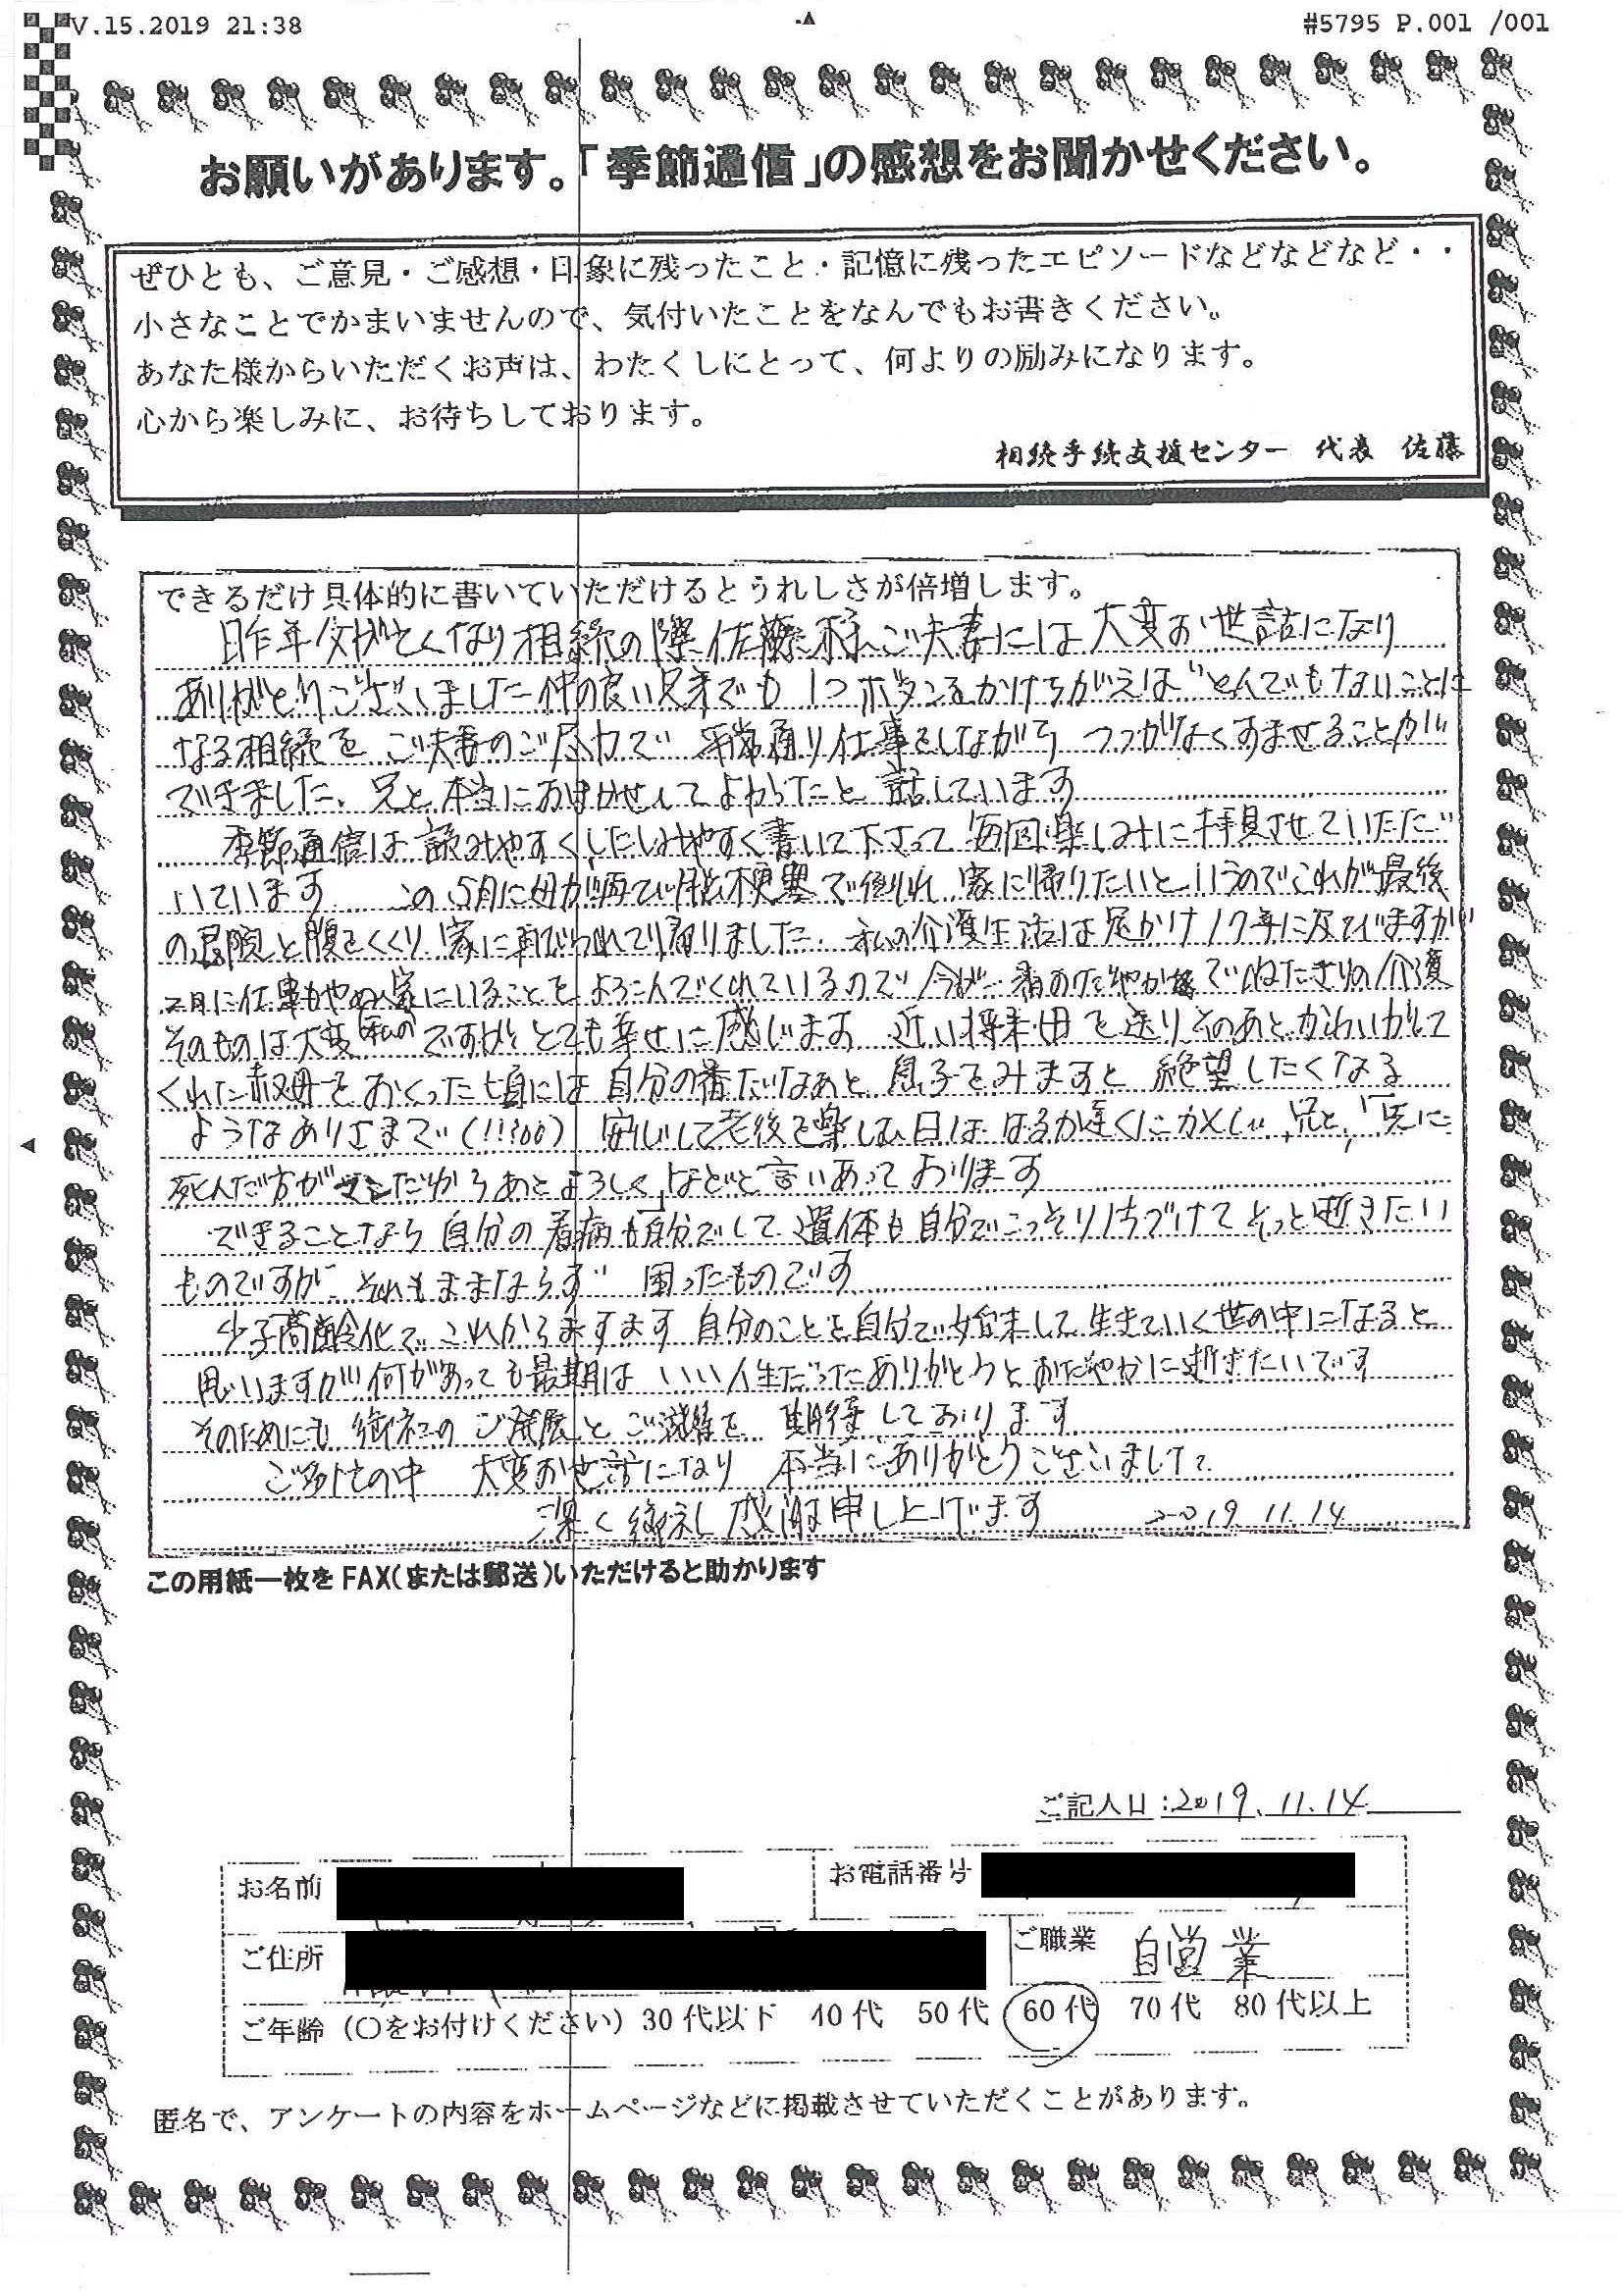 V.15.2019 21:38
#5795 P.001 /001
お願いがあります。「季節通信」の感想をお聞かせください。
ぜひとも、ご意見・ご感想・印象に残ったこと・記憶に残ったエピソードなどなどなど・・
小さなことでかまいませんので、気付いたことをなんでもお書きください。
あなた様からいただくお声は、わたくしにとって、何よりの励みになります。
心から楽しみに、お待ちしております。
相続手続支援センター 代表 佐藤
できるだけ具体的に書いていただけるとうれしさが倍増します。
昨年父が亡くなり相続の際佐藤様ご夫妻には大変お世話になり
ありがとうございました 仲の良い兄弟でも 1つボタンをかけちがえば とんでもないことに
なる相続を ご夫妻のご尽力で 平常通り仕事をしながら つつがなくすませることが
できました、兄と本当におまかせしてよかったと 話しています
季節通信は読みやすくしたしみやすく書いて下さって 毎回楽しみに拝見させていただ
いています この5月に母が再び脳梗塞で倒れ 家に帰りたいというのでこれが最後
の退院と腹をくくり 家に連れて帰りました、私の介護生活は足かけ17年に及びますが
2月に仕事もやめ家にいることをよろこんでくれているので 今が一番おだやかで ねたきりの介護
そのものは大変(私の)ですが とても幸せに感じます 近い将来母を送り そのあとかわいがって
くれた叔母をおくった頃には 自分の番だなあと 息子をみますと 絶望したくなる
ようなありさまで(!!?00) 安心して老後を楽しむ日は はるか遠くにかくし、兄と、「先に
死んだ方がマシだから あとよろしく」などと言いあっております
できることなら 自分の看病も自分でして 遺体も自分でこっそり片づけて そっと逝きたい
ものですが それもままならず 困ったものです
少子高齢化で これからますます 自分のことを自分で始末して 生きていく世の中になると
思いますが 何があっても最期は いい人生だったありがとうと おだやかに逝きたいです
そのためにも 御社のご発展と ご活躍を 期待しております
ご多忙の中 大変お世話になり 本当にありがとうございました
深く御礼 感謝申し上げます 2019 11.14
この用紙一枚を FAX(または郵送)いただけると助かります
ご記入日:2019. 11.14
お名前
お電話番号
ご住所
ご職業 自営業
ご年齢(○をお付けください) 30代以下 40代 50代 60代 70代 80代以上
匿名で、アンケートの内容をホームページなどに掲載させていただくことがあります。